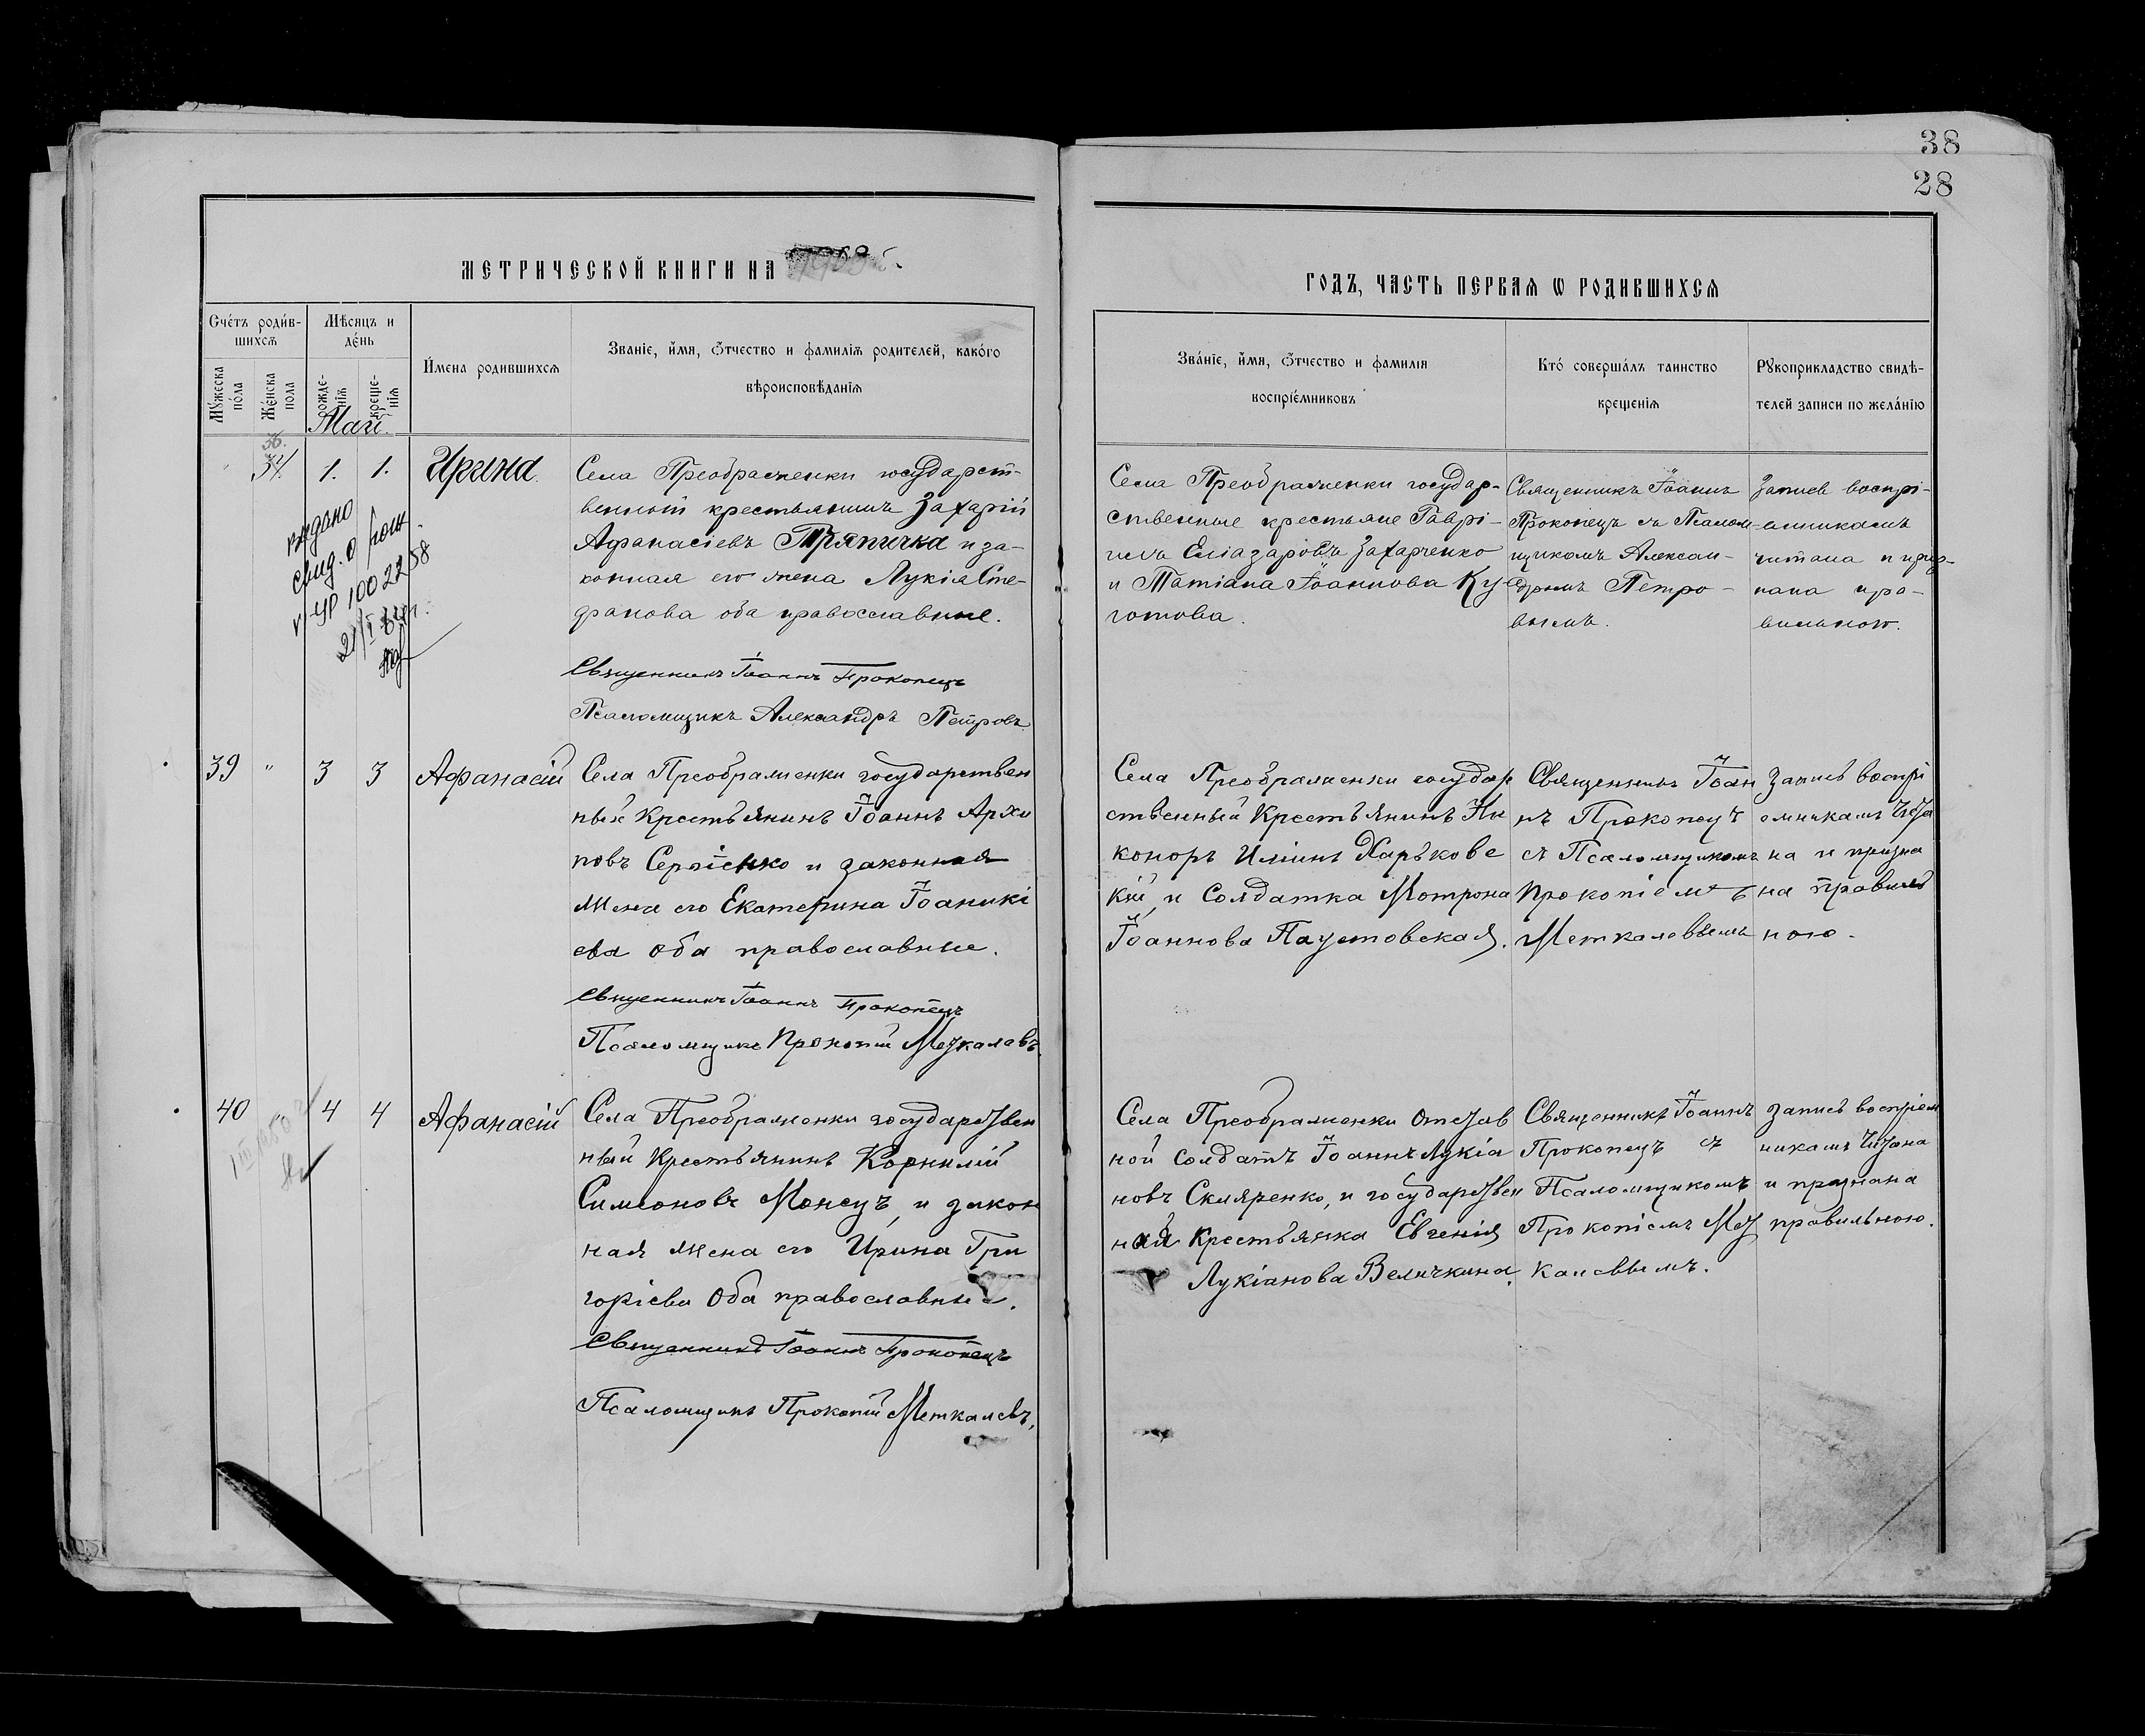 38
28
МЕТРИЧЕСКОЙ КНИГИ НА
ГОДЪ, ЧАСТЬ ПЕРВАЯ Ѡ РОДИВШИХСЯ
Счéтъ роди́в-
шихсѧ
Мѣ́сяцъ и
дéнь
И́мена родившихсѧ
Званіе, и́мя, ѻ́тчество и фамиліѧ родителей, како́го
вѣроисповѣданія
Му́жеска
по́ла
Же́нска
пола
рожде-
ніѧ
креще-
нія
Май.
Зва́ніе, и́мя, ѻ́тчество и фамилія
воспріе́мниковъ
Кто́ соверша́лъ таинство
крещеніѧ
Рꙋкоприкладство свидѣ-
телей записи по жела́нію
36.
34. 1. 1. Ирина.
Села Преображенки государст-
венный крестьянинъ Захарій
Афанасіевъ Тряпичка и за-
конная его жена Лукія Сте-
фанова оба православные.
Священникъ Іоаннъ Прокопецъ
Псаломщикъ Александръ Петровъ.
видано
свид. о рож.
УР 1002258
Села Преображенки государ-
ственные крестьяне Гаврі-
илъ Еліазаровъ Захарченко
и Татіана Іоаннова Ку-
готова.
Священникъ Іоаннъ
Прокопецъ съ Псалом-
щикомъ Алексан-
дромъ Петро-
вымъ.
Запись воспрі-
емникамъ
читана и приз-
нана пра-
вильною.
39 " 3 3 Афанасій
Села Преображенки государствен
ный Крестьянинъ Іоаннъ Архи
повъ Сергіенко и законная
жена его Екатерина Іоаникі
ева оба православные.
Священникъ Іоаннъ Прокопецъ
Псаломщикъ Прокопій Меткалевъ.
Села Преображенки государ
ственный Крестьянинъ Ни
коноръ Иліинъ Харьковс
кій, и Солдатка Мотрона
Іоаннова Паустовская.
Священникъ Іоан
нъ Прокопецъ
съ Псаломщикомъ
Прокопіемъ
Меткалевымъ
Запись воспрі
емникамъ чита
на и призна
на правиль
ною.
40 4 4 Афанасій
Села Преображенки государствен
ный Крестьянинъ Корнилій
Симеоновъ Монецъ, и закон
ная жена его Ирина Гри
горіева Оба православные.
Священникъ Іоаннъ Прокопецъ
Псаломщикъ Прокопій Меткалевъ,
Села Преображенки Отстав
ной Солдатъ Іоаннъ Лукіа
новъ Скляренко, и государствен
ная Крестьянка Евгенія
Лукіанова Величкина.
Священникъ Іоаннъ
Прокопецъ съ
Псаломщикомъ
Прокопіемъ Мет
калевымъ.
запись воспріем
никамъ читана
и признана
правильною.